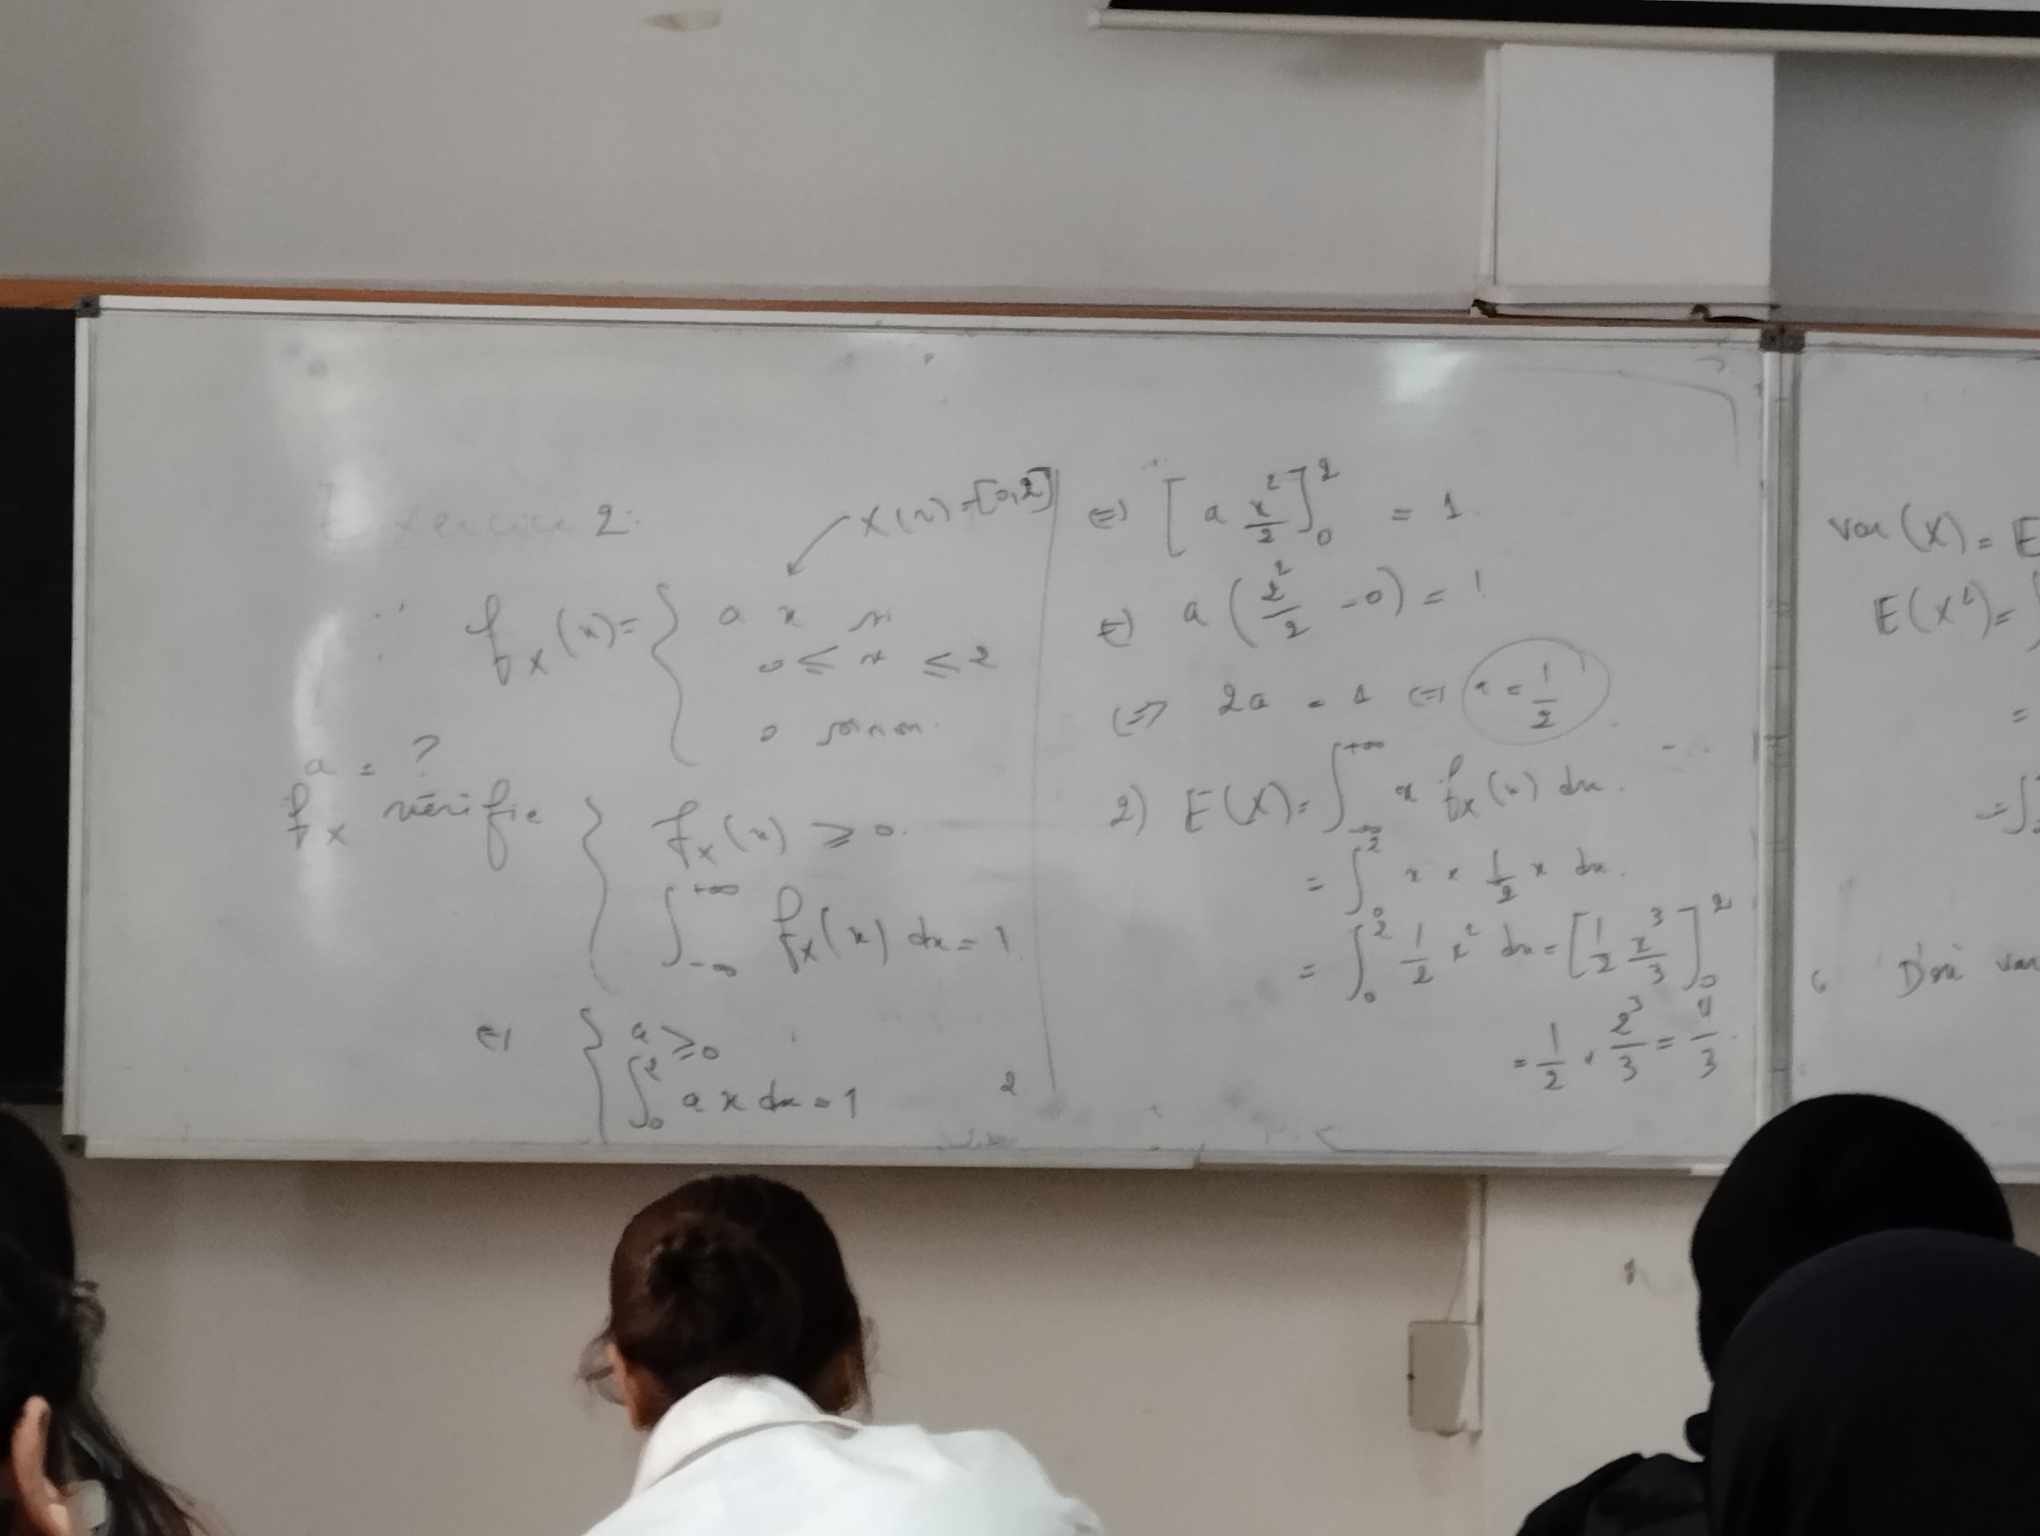 Exercice 2:
X(Ω)=[0,2]
f_X(x)= { a x si
0 ≤ x ≤ 2
0 sinon.
a = ?
f_X vérifie { f_X(x) ≥ 0.
∫_{-∞}^{+∞} f_X(x) dx = 1
⇔ { a ≥ 0
∫_0^2 a x dx = 1
2
⇔ [a x²/2]_0^2 = 1
⇔ a (2²/2 - 0) = 1
⇔ 2a = 1 ⇔ a = 1/2
2) E(X) = ∫_{-∞}^{+∞} x f_X(x) dx.
= ∫_0^2 x × 1/2 x dx.
= ∫_0^2 1/2 x² dx = [1/2 x³/3]_0^2
= 1/2 × 2³/3 = 4/3.
Var(X) = E
E(X²) = ∫
=
= ∫
D'où Var